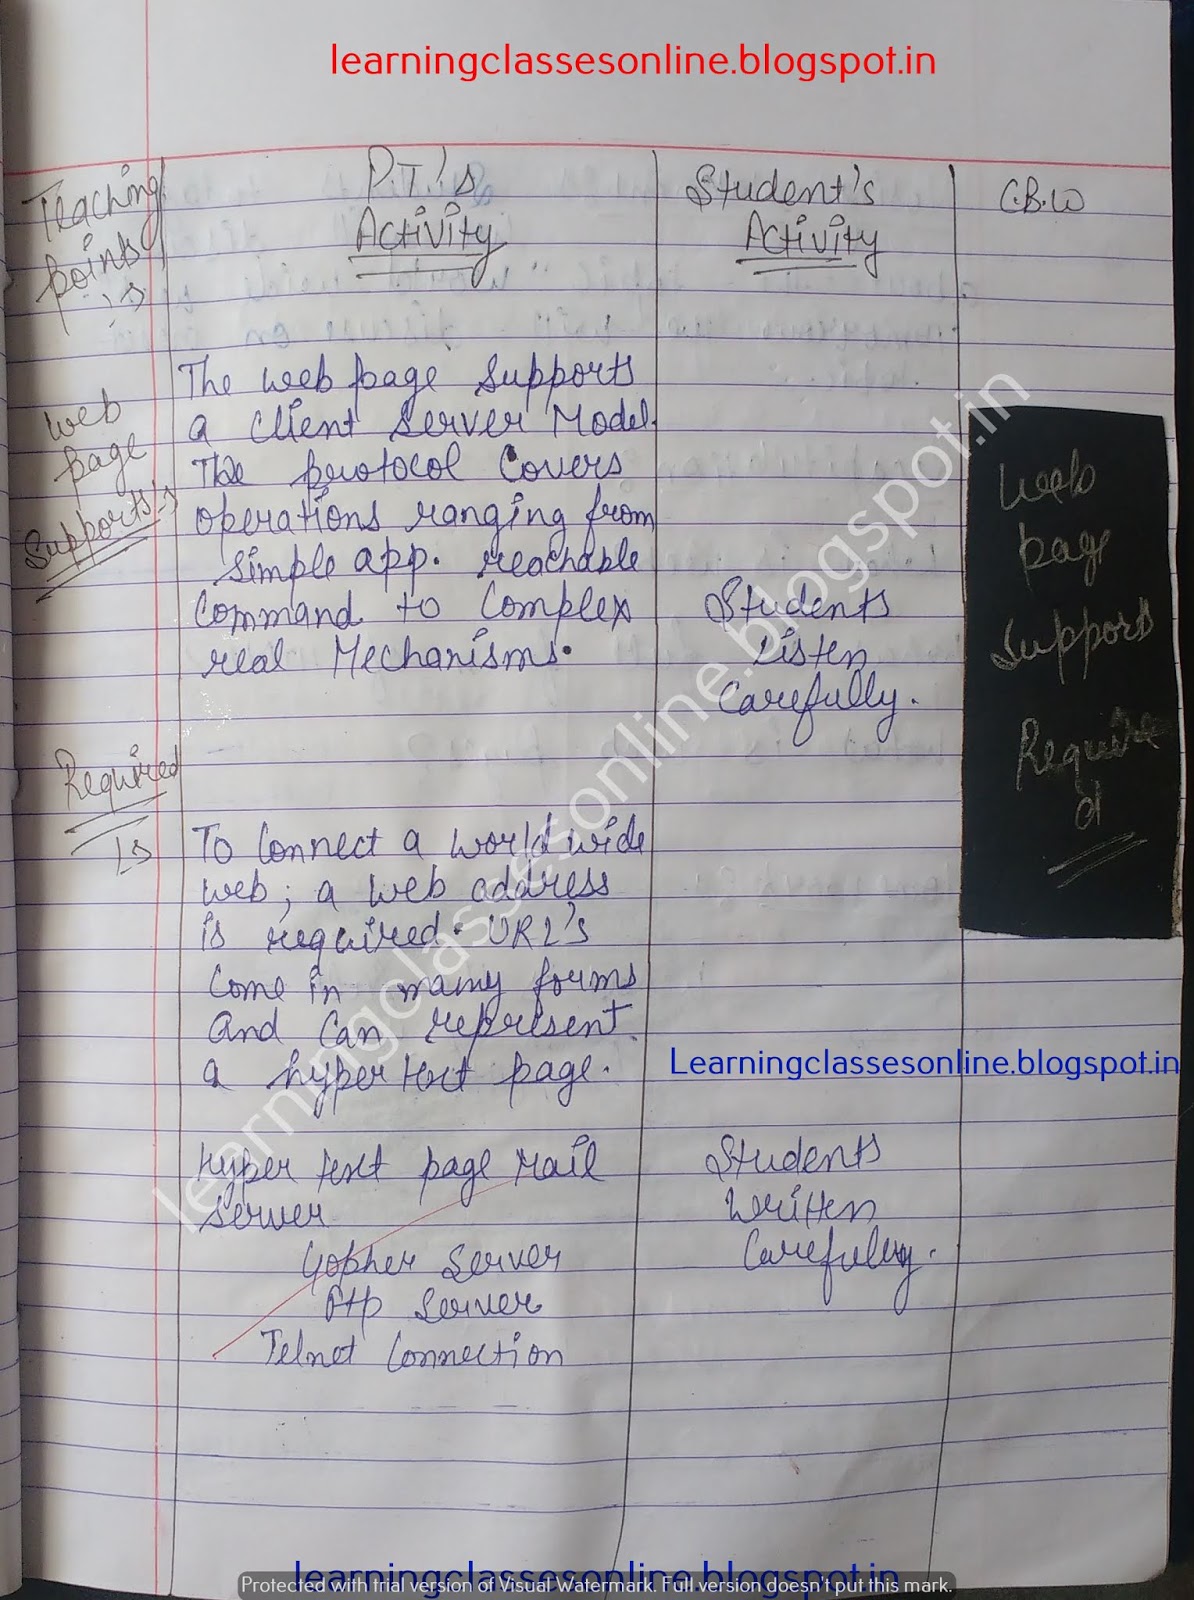 learningclassesonline.blogspot.in
Teaching
points
P.T.'s
Activity
Student's
Activity
C.B.W
Web
page
Supports:-
The web page Supports
a Client Server Model.
The protocol Covers
operations ranging from
simple app. reachable
Command to Complex
real Mechanisms.
Students
Listen
Carefully.
Web
page
Supports
Require
d
Required
To Connect a world wide
web; a web address
is required. URL's
Come in many forms
and Can represent
a hyper text page.
Learningclassesonline.blogspot.in
Hyper text page
Server
Gopher Server
Ftp Server
Telnet Connection
Students
Written
Carefully.
learningclassesonline.blogspot.in
learningclassesonline.blogspot.in
Protected with trial version of Visual Watermark. Full version doesn't put this mark.